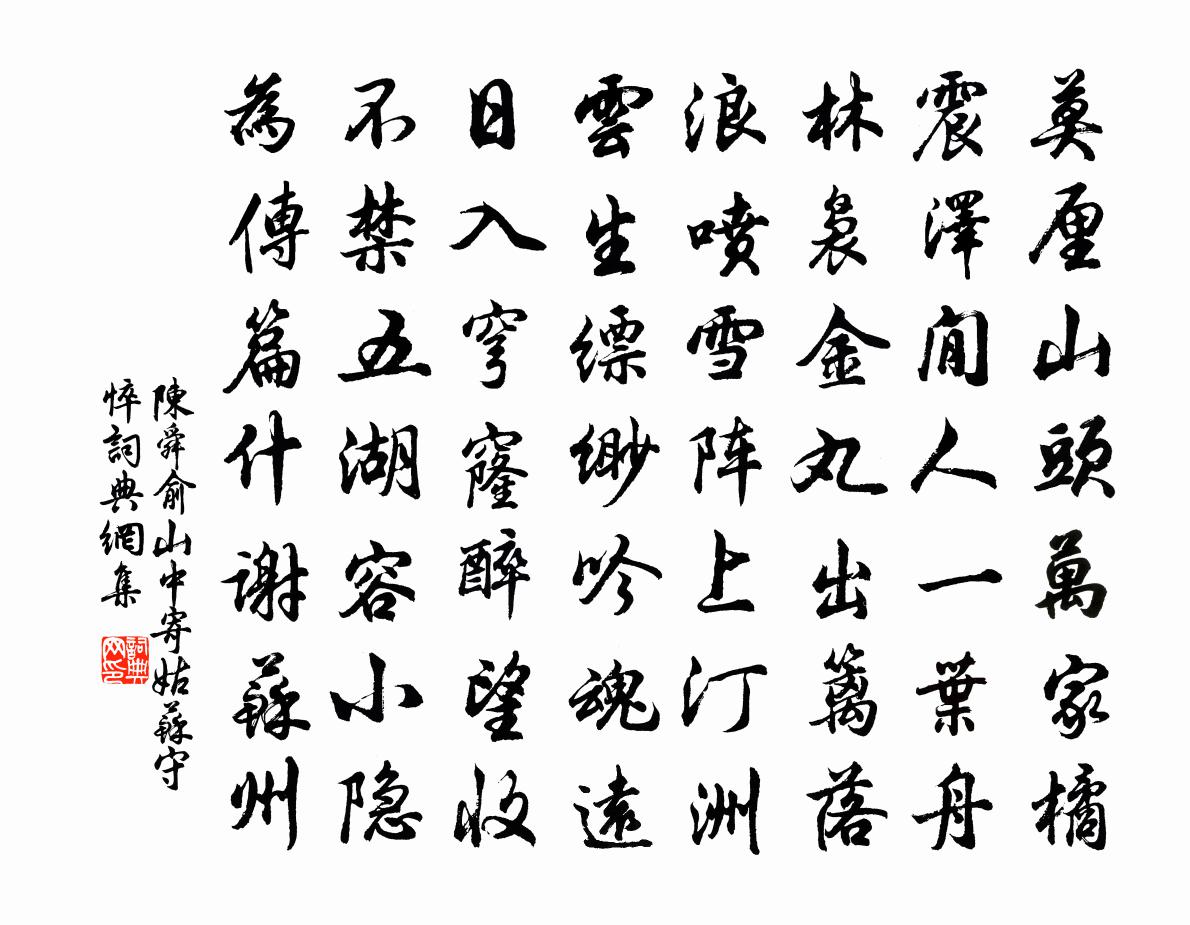 莫厘山頭萬家橘
震澤閒人一葉舟
林裊金丸出籬落
浪噴雪阵上汀洲
雲生縹緲吟魂遠
日入穹窿醉望收
不禁五湖容小隐
為傳篇什謝蘇州
陳舜俞山中寄姑蘇守
悴詞典網集
詞典网印